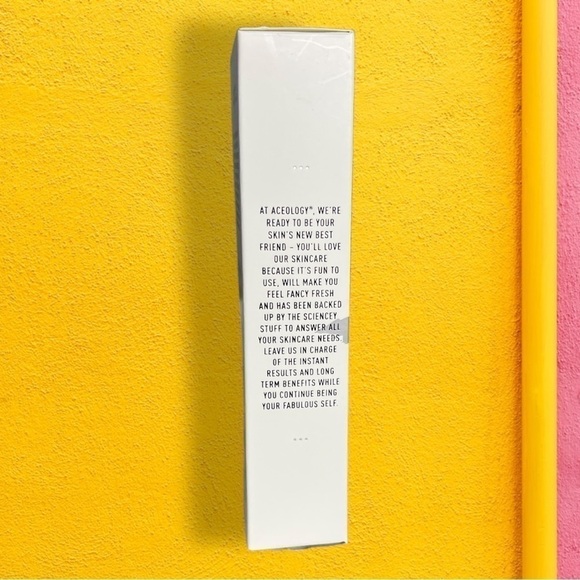 AT ACEOLOGY®, WE'RE
READY TO BE YOUR
SKIN'S NEW BEST
FRIEND – YOU'LL LOVE
OUR SKINCARE
BECAUSE IT'S FUN TO
USE, WILL MAKE YOU
FEEL FANCY FRESH
AND HAS BEEN BACKED
UP BY THE SCIENCEY
STUFF TO ANSWER ALL
YOUR SKINCARE NEEDS.
LEAVE US IN CHARGE
OF THE INSTANT
RESULTS AND LONG
TERM BENEFITS WHILE
YOU CONTINUE BEING
YOUR FABULOUS SELF.